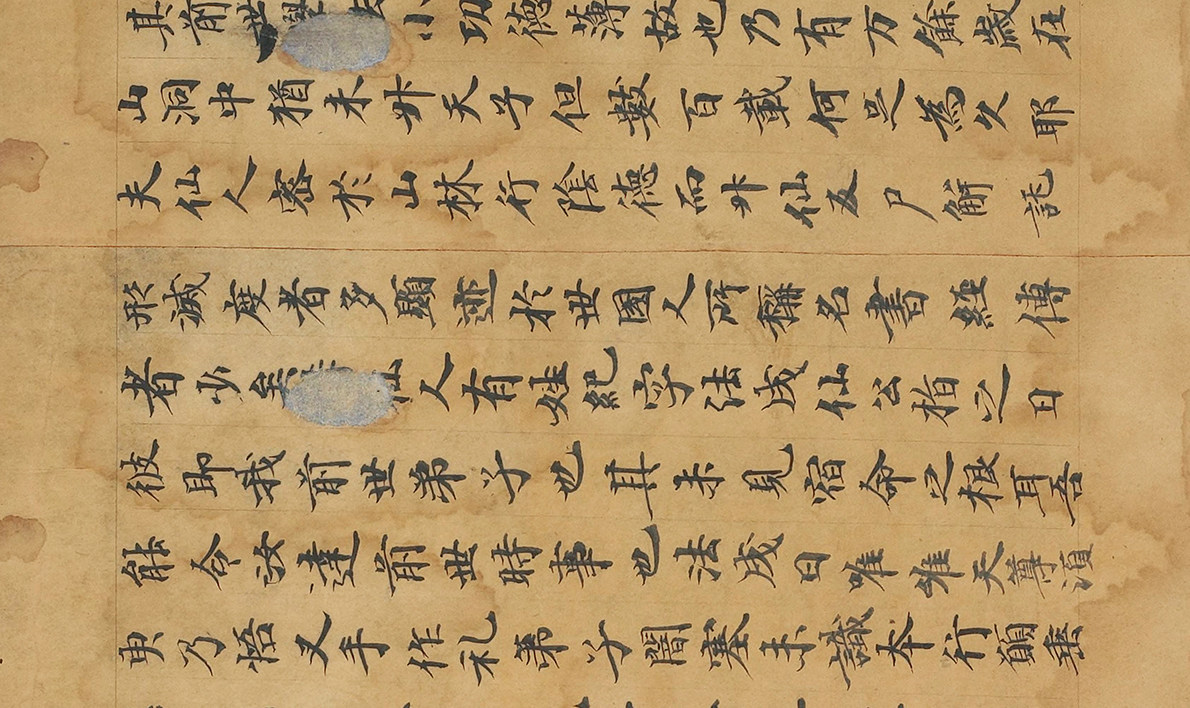 其前世小功德薄故也乃有万餘歲在
山洞中猶未升天子但數百載何足為久耶
夫仙人密於山林行陰德而升仙及尸解託
形滅度者多顯迹於世國人所稱名書經傳
者少仙人有姓紀字法成仙公指之曰
彼即我前世弟子也其未見宿命之根耳吾
能令汝達前世時事也法成曰唯唯天尊須
臾乃悟叉手作礼弟子闇塞未識本行願垂